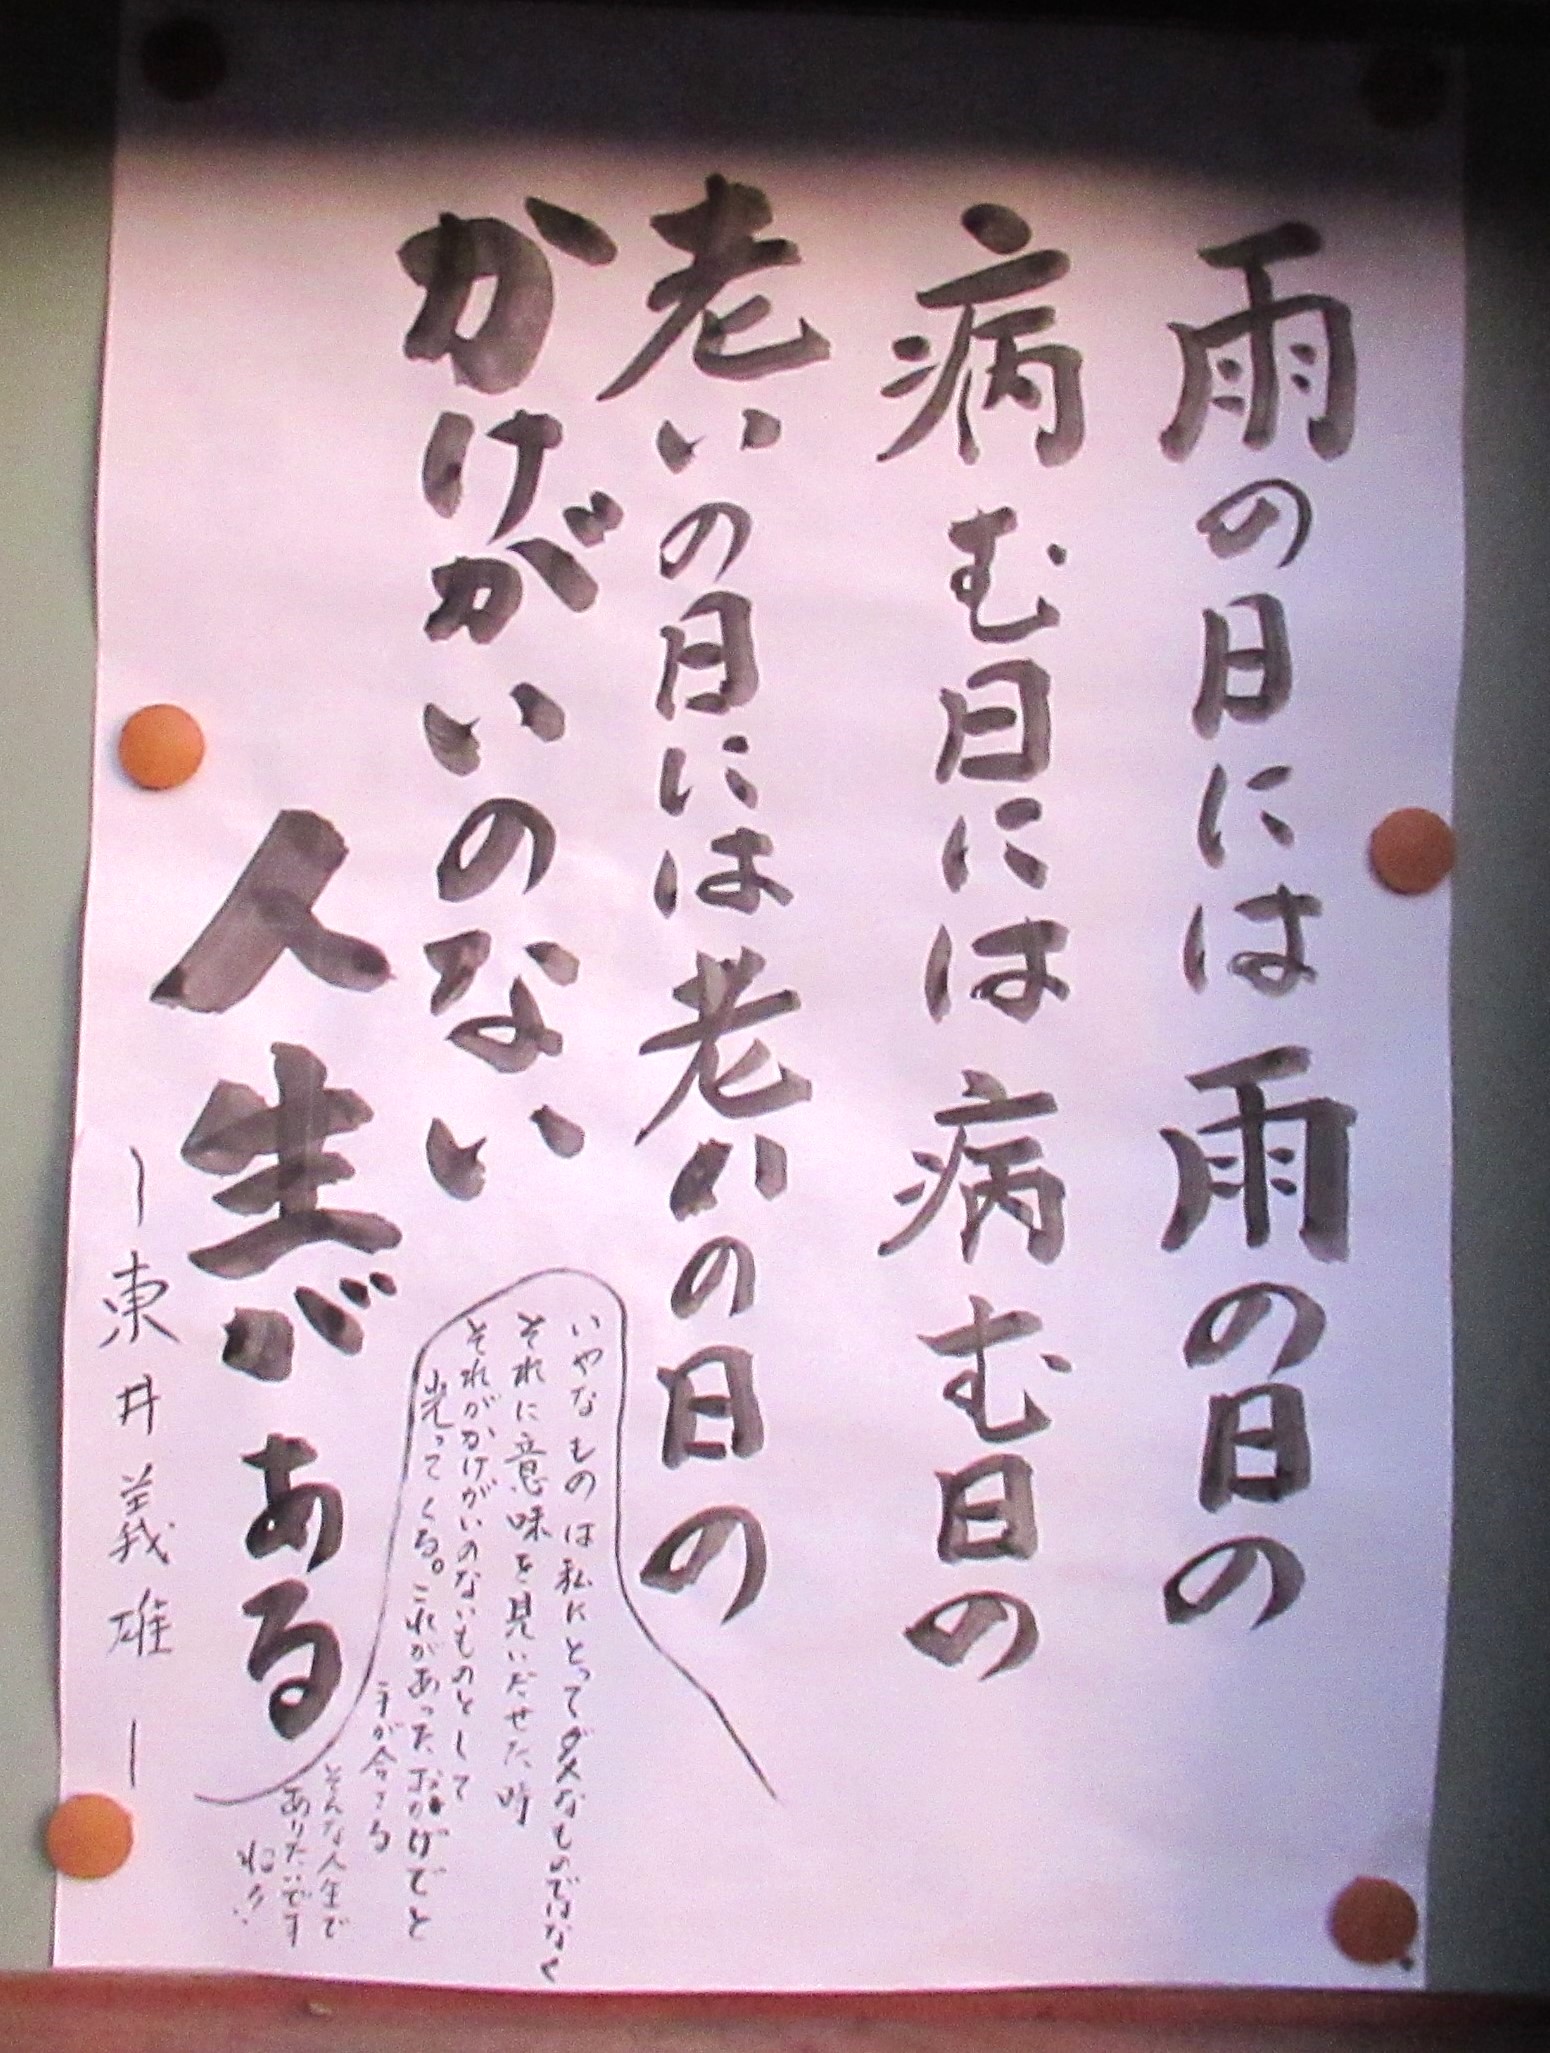 雨の日には雨の日の
病む日には病む日の
老いの日には老いの日の
かけがいのない
人生がある
ー東井義雄ー
いやなものは私にとってダメなものではなく
それに意味を見いだせた時
それがかけがいのないものとして
光ってくる。これがあったおかげでと
手が合さる
そんな人生で
ありたいです
ね!!